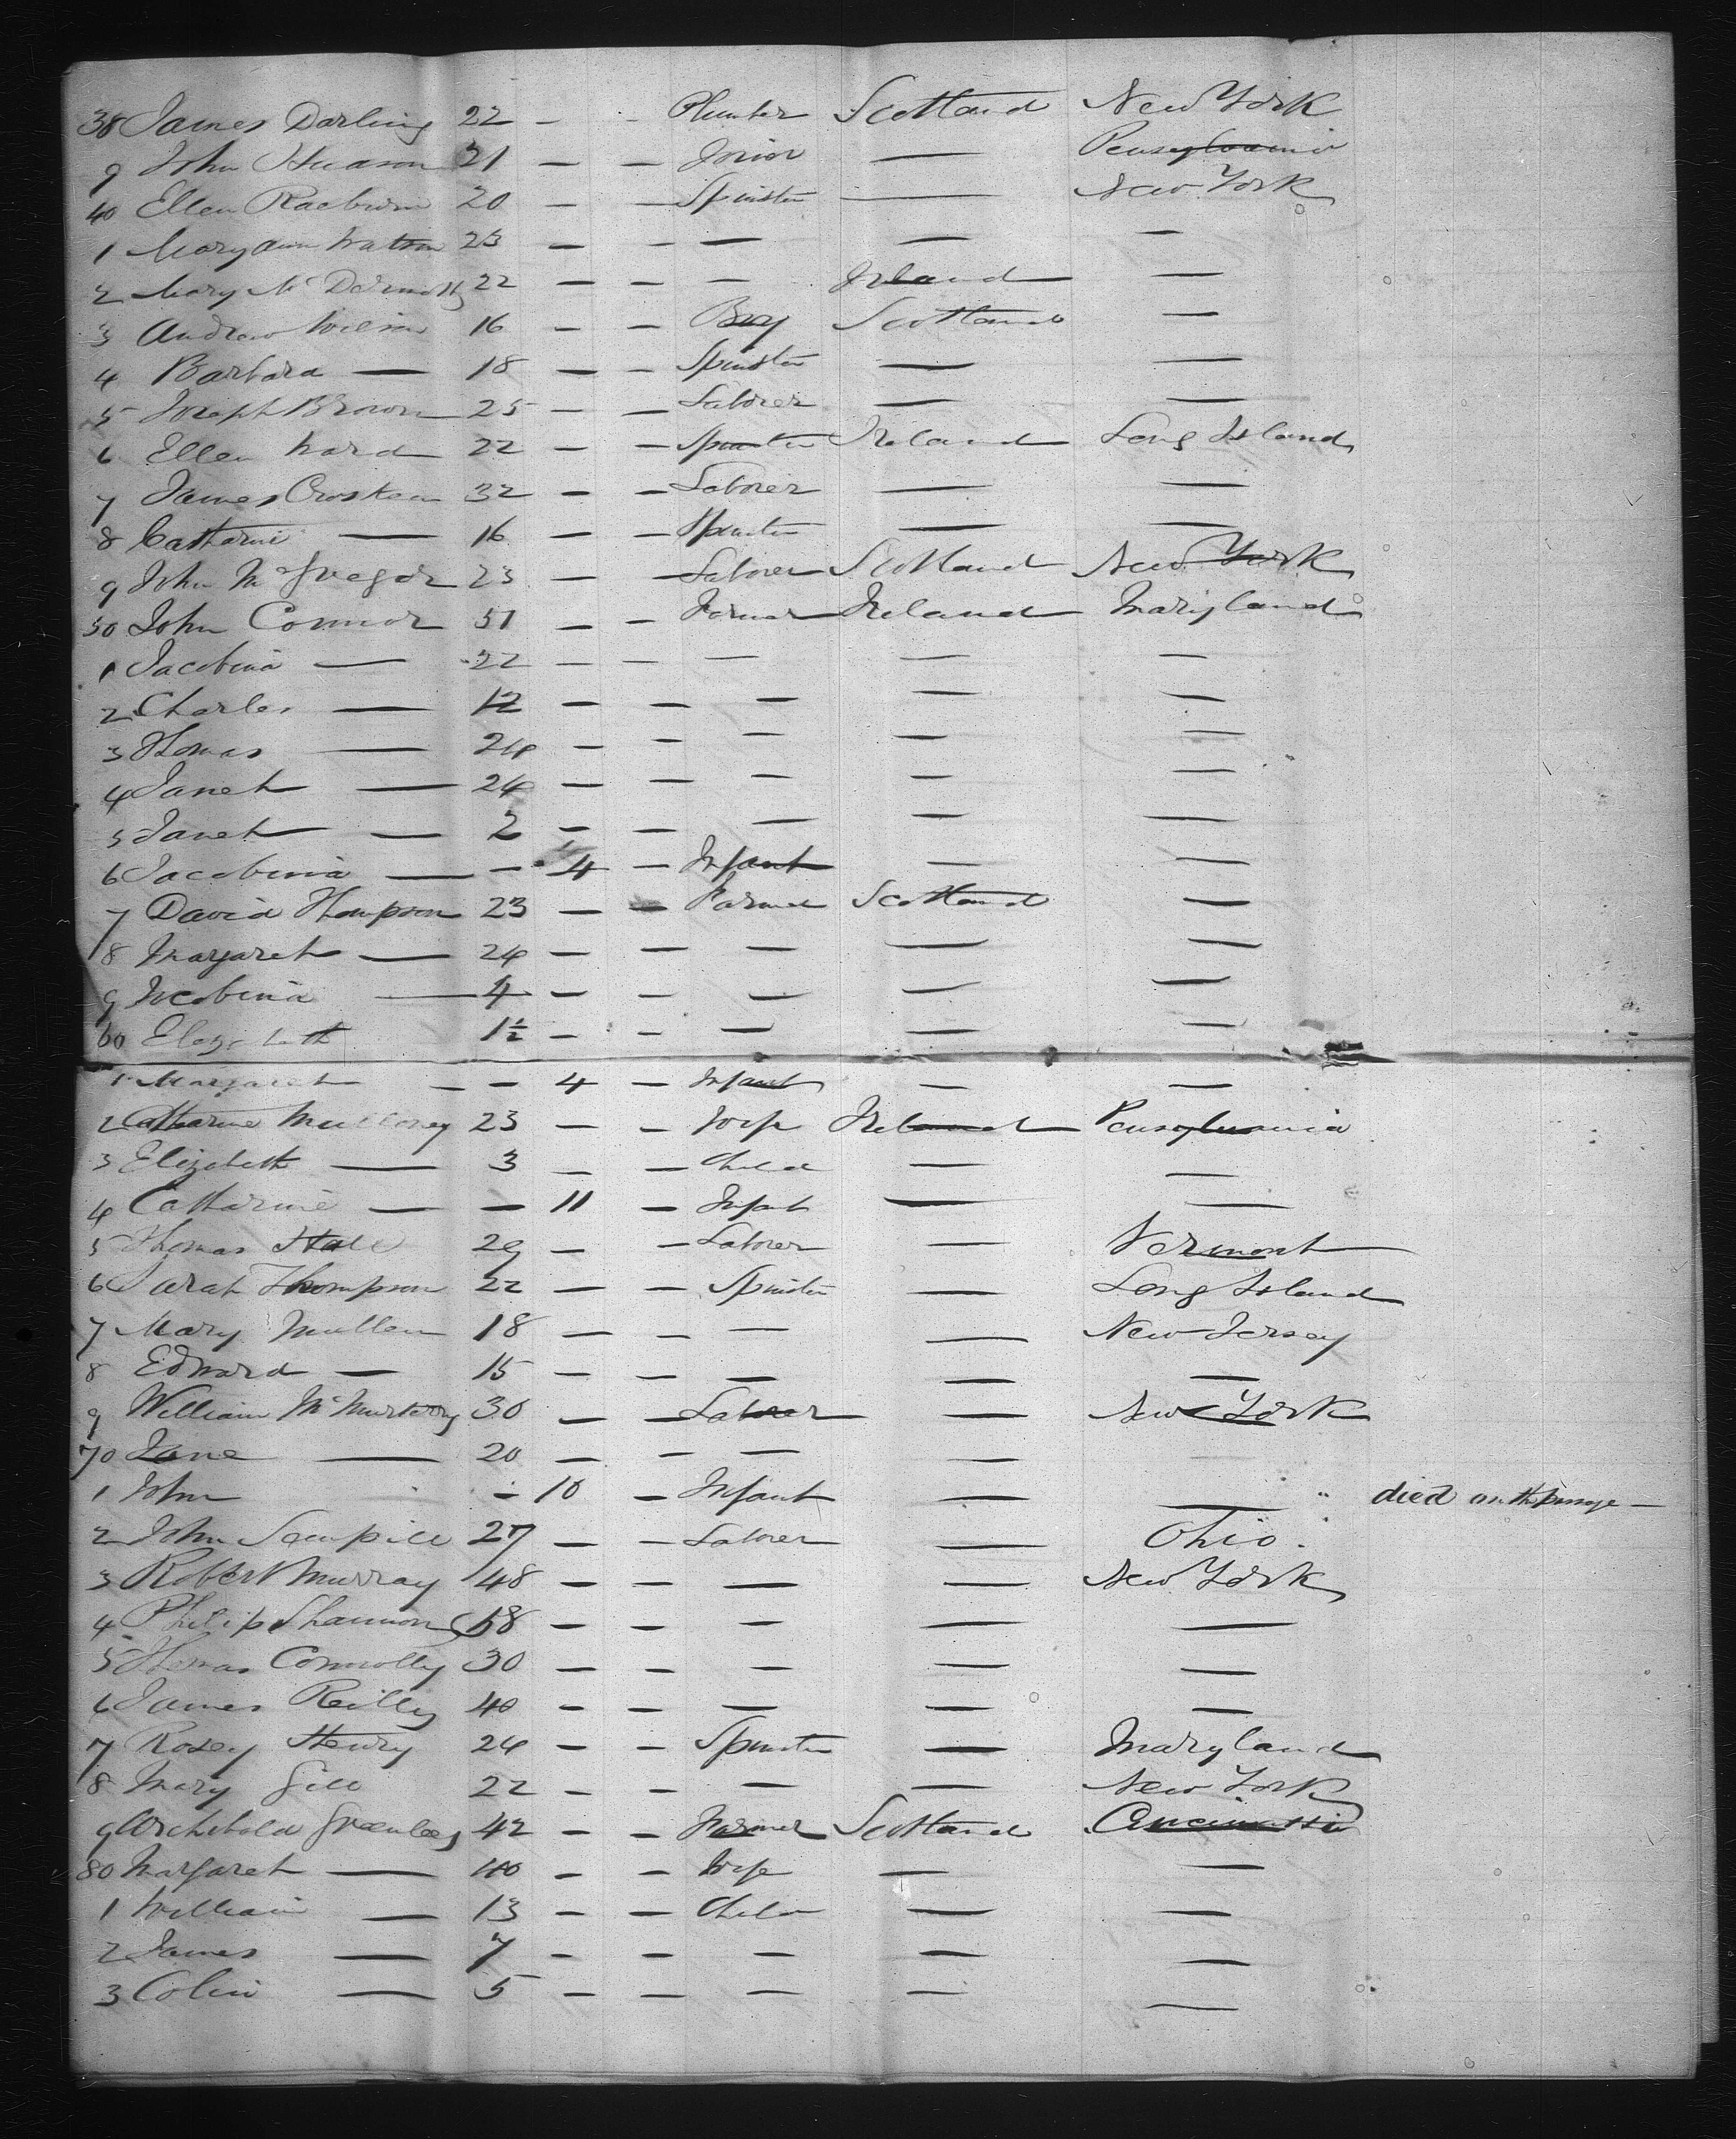 38 James Darling 22 — - Plumber Scotland New York
9 John Hudson 21 — — Joiner — Pensylvania
40 Ellen Raeburn 20 — — Spinster — New York
1 Mary Ann Watson 23 — — — — —
2 Mary McDermott 22 — — — Ireland —
3 Andrew Wilson 16 — — Boy Scotland —
4 Barbara — 18 — — Spinster — —
5 Joseph Brown 25 — — Laborer — —
6 Ellen Ward 22 — — Spinster Ireland Long Island
7 James Croskean 32 — — Laborer — —
8 Catharine — 16 — — Spinster — —
9 John McGregor 23 — — Laborer Scotland New York
50 John Connor 51 — — Farmer Ireland Maryland
1 Jacobina — 22 — — — — —
2 Charles — 12 — — — — —
3 Thomas — 24 — — — — —
4 Janet — 24 — — — — —
5 Janet — 2 — — — — —
6 Jacobina — — 4 — Infant — —
7 David Thompson 23 — — Farmer Scotland —
8 Margaret — 24 — — — — —
9 Jacobina — 4 — — — — —
60 Elizabeth 1½ — — — — —
1 Margaret — — 4 — Infant — —
2 Catharine Mulloney 23 — — Wife Ireland Pensylvania
3 Elizabeth — 3 — — Child — —
4 Catharine — — 11 — Infant — —
5 Thomas Hall 29 — — Laborer — Vermont
6 Sarah Thompson 22 — — Spinster — Long Island
7 Mary Mullen 18 — — — — New Jersey
8 Edward — 15 — — — — —
9 William McMurtery 30 — — Laborer — New York
70 Jane — 20 — — — —
1 John - 10 — Infant — — " died on the passage —
2 John Sempill 27 — — Laborer — Ohio.
3 Robert Murray 48 — — — — New York
4 Philip Shannon 58 — — — — —
5 Thomas Connolly 30 — — — — —
6 James Reilly 40 — — — — —
7 Rosey Henry 24 — — Spinster — Maryland
8 Mary Gill 22 — — — — New York
9 Archibald Greenlees 42 — — Farmer Scotland Cincinattii
80 Margaret — 40 — — Wife — —
1 William — 13 — — Child — —
2 James — 7 — — — — —
3 Colin — 5 — — — — —